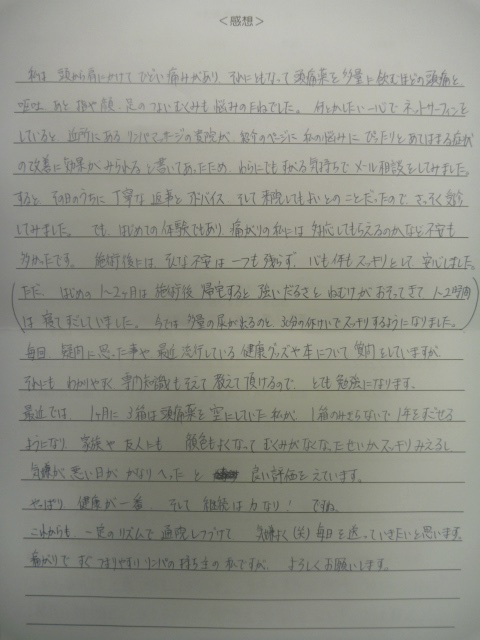 ＜感想＞
私は 頭から肩にかけて ひどい痛みがあり、それにともなって 頭痛薬を多量に飲むほどの頭痛と
嘔吐、あと 指や顔、足の つよいむくみも 悩みのたねでした。 何とかしたい一心で ネットサーフィンを
していると 近所にある リンパマッサージの 医院が 紹介のページに 私の悩みに ぴったりと あてはまる症状
の改善に 効果が みられる と 書いてあったため わらにもすがる気持ちで メール相談をしてみました。
すると、その日のうちに 丁寧な 返事と アドバイス、そして 来院してもよいとのことだったので、さっそく 受診
してみました。 でも、はじめての 体験でもあり 痛がりの私には 対応してもらえるのか など 不安も
多かったです。 施術後には、そんな不安は 一つも 残らず、心も体も スッキリとして 安心しました。
(ただ、はじめの 1〜2ヶ月は 施術後 帰宅すると 強いだるさと ねむけが おそってきて 1〜2時間
は 寝てすごしていました。 今では 多量の尿が出るのと 30分の休けいで スッキリするようになりました。)
毎回 疑問に思った事や 最近 流行している 健康グッズや本について 質問をしていますが、
それにも わかりやすく 専門知識も そえて 教えて 頂けるので、とても 勉強になります。
最近では、1ヶ月に 3箱は 頭痛薬を 空にしていた 私が、1箱のみきらないで 1年をすごせる
ようになり 家族や 友人にも 顔色もよくなって むくみがなくなったせいか スッキリみえるし
気嫌が 悪い日が かなりへった と 良い評価をえています。
やっぱり 健康が一番、そして 継続は力なり! ですね。
これからも、一定のリズムで 通院しつづけて 気嫌よく(笑) 毎日を送っていきたいと思います。
痛がりで すぐつまりやすい リンパの 持ち主の 私ですが、よろしくお願いします。